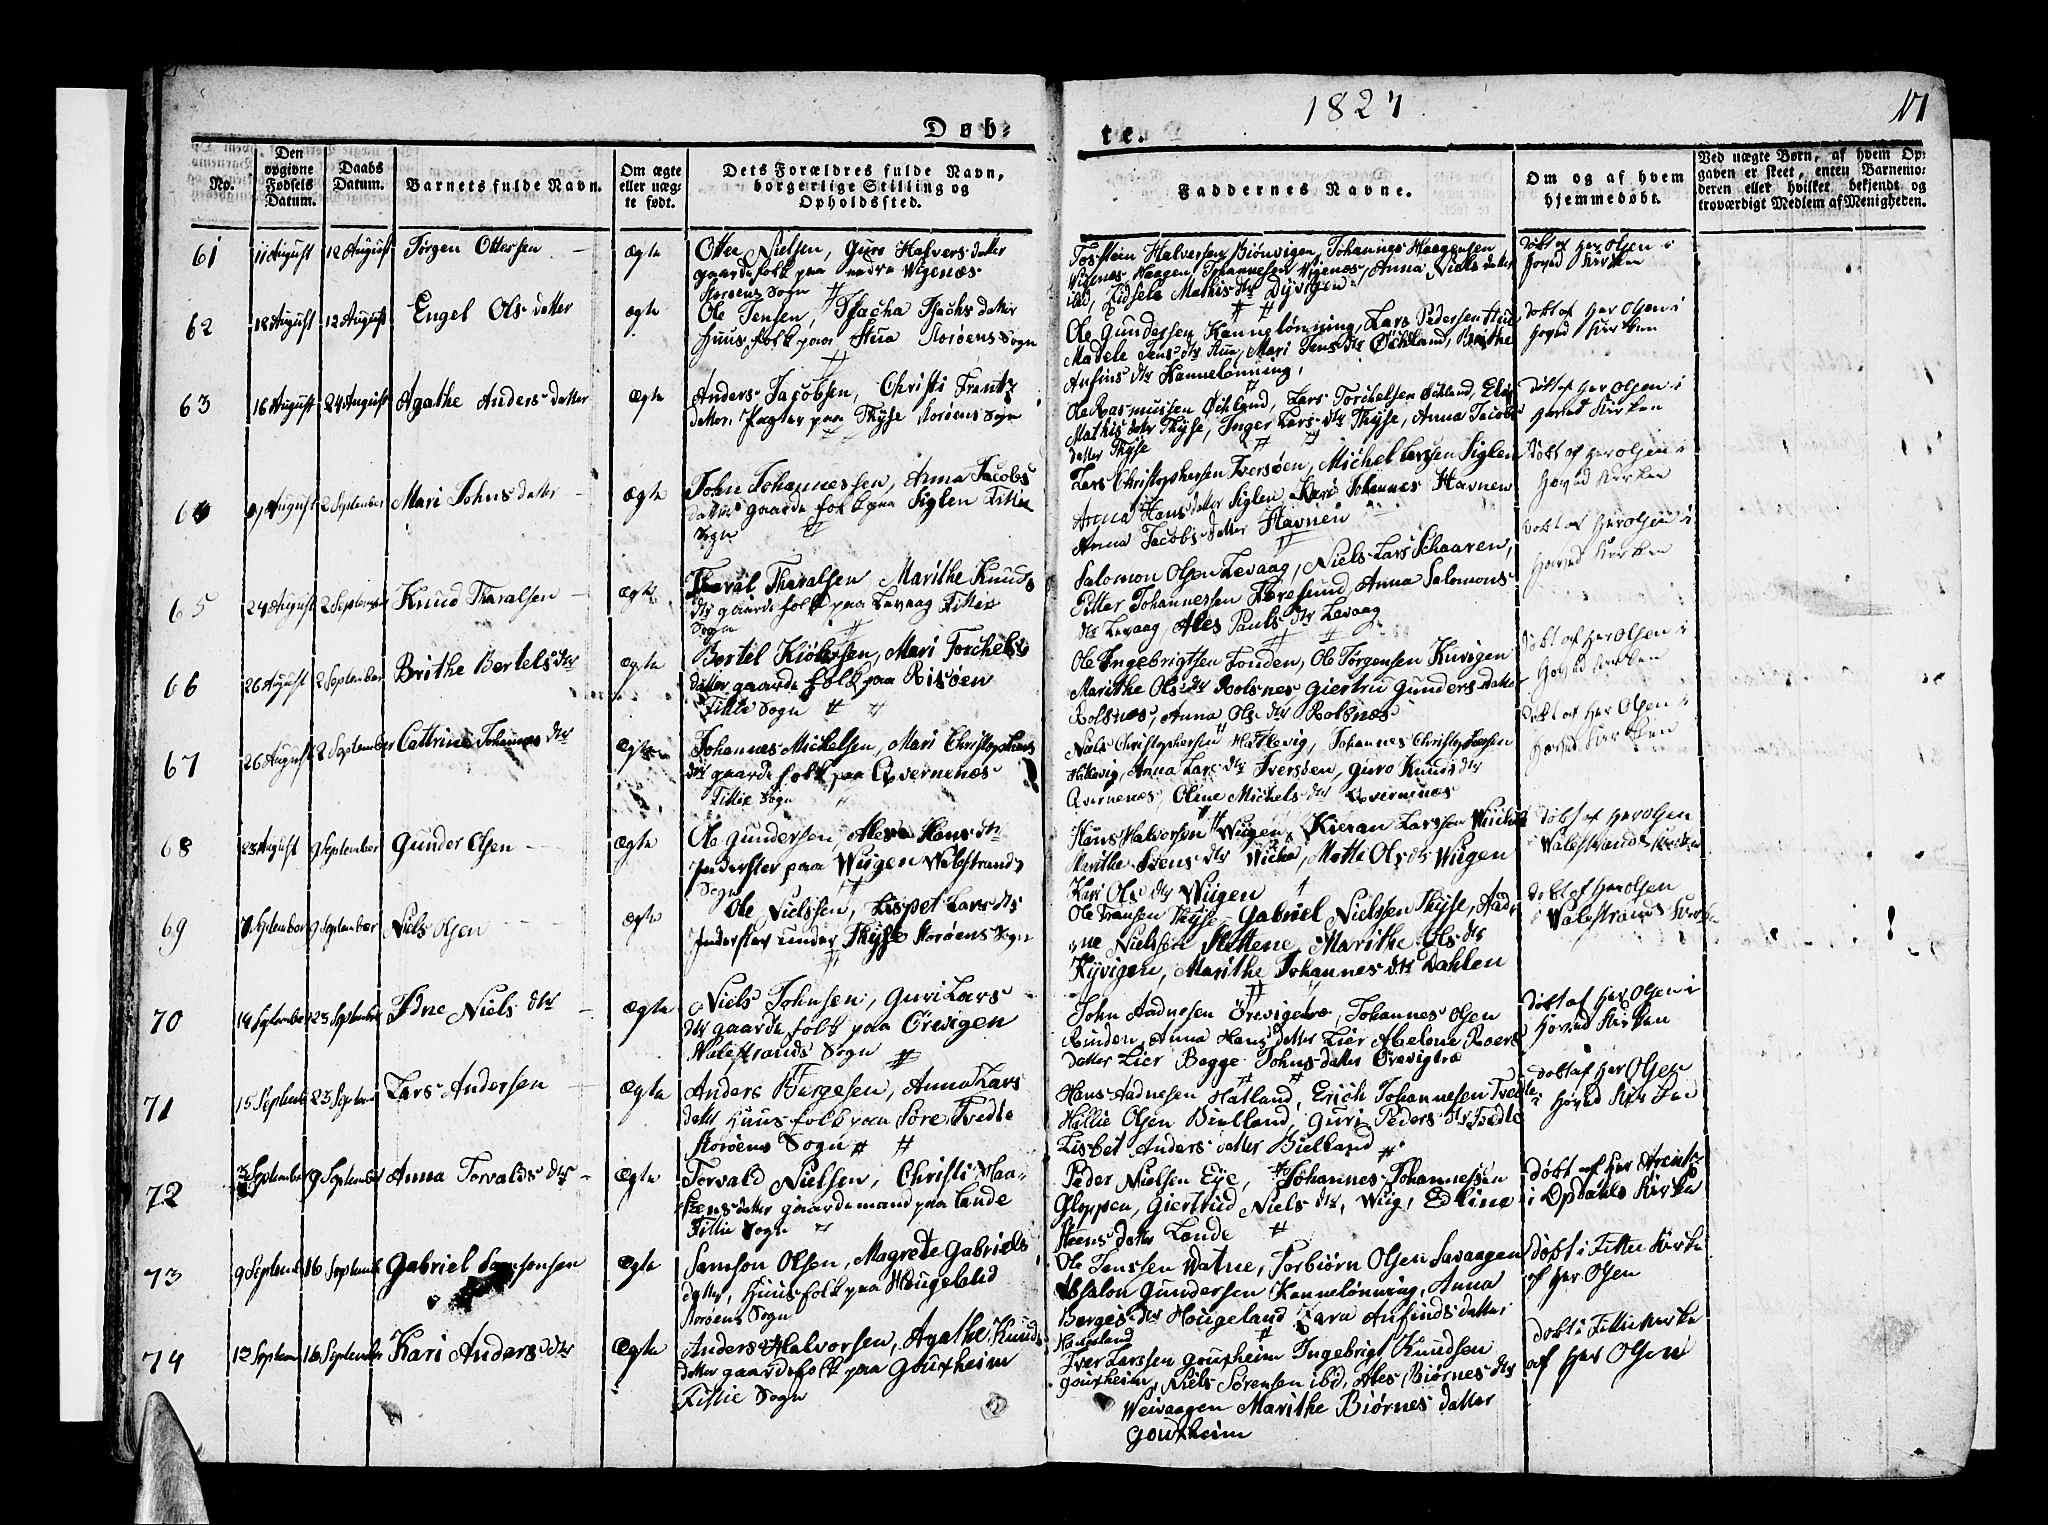 1827
17
Døb-
te.
No.
Den opgivne Fødsels Datum.
Daabs Datum.
Barnets fulde Navn.
Om ægte eller uæg-te født.
Dets Forældres fulde Navn, borgerlige Stilling og Opholdssted.
Faddernes Navne.
Om og af hvem hjemmedøbt.
Ved uægte Børn, af hvem Op-
gaven er skeet, enten Barnemo-
deren eller hvilket bekjendt og
troværdigt Medlem af Menigheden.
61
11 August
12 August
Jørgen Ottersen
Ægte
Otter Nielsen, Guro Halvers datter
gaardefolk paa nedre Wigenæs
Storøens Sogn
Tosten Halversen Biønvigen, Johannes Haagensen
Wigenæs Haagen Johannesen Wigenæs, Anna Niels datter
ibd, Zidsele Mathis dtr Dyvigen
døbt af Her Olsen i
Hoved Kirken
62
12 August
Engel Ols datter
Ægte
Ole Jensen,
Huusfolk paa Stua Storøens Sogn
Ole Gundersen Kannelønning, Lars Pedersen
Madele Jens dtr Stua, Mari Jens dtr Øchland, Brithe
Anfins dtr Kannelønning,
døbt af Her Olsen i
Hoved Kirken
63
16 August
24 August
Agathe Anders datter
Ægte
Anders Jacobsen, Christi Frantz
datter, Pagter paa Thyse Storøens Sogn
Ole Rasmussen Øchland, Lars Torchelsen Øchland,
Mathis datter Thyse, Inger Lars dtr Thyse, Anna Jacobs
datter Thyse
døbt af Her Olsen i
Hoved Kirken
August
2 September
Mari Johns datter
Ægte
John Johannessen, Anna Jacobs
datter gaardefolk paa Siglen Fittie
Sogn
Lars Christophersen Iversøen, Michel Larssen Siglen
Anna Hans datter Siglen, Kari Johannes Havnen
Anna Jacobs datter Havnen
døbt af Her Olsen i
Hoved Kirken
65
24 August
2 September
Knud Tharalsen
Ægte
Tharal Tharalsen Marithe Knuds
dtr gaardefolk paa Levaag Fittie
Sogn
Salomon Olsen Levaag, Niels Lars Schaaren,
Pitter Johannessen Færesund, Anna Salomons
dtr Levaag Ales Pauls dtr Levaag
døbt af Her Olsen i
Hoved Kirken
66
26 August
2 September
Brithe Bertels dtr
Ægte
Bertel Mari Torchels
datter gaardefolk paa Risøen
Fittie Sogn
Ole Ingebrigtsen Fonden, Ole Jørgensen
Marithe Ols dtr Rolsnes Giertru Gunders datter
Rolsnæs, Anna Ols dtr Rolsnæs
døbt af Her Olsen i
Hoved Kirken
67
26 August
2 September
Cattrine Johannes dtr
Ægte
Johannæs Michelsen, Mari Christophers
dtr gaardefolk paa Qvernenæs
Fittie Sogn
Niels Christophersen Hattlevig, Johannes Christophersen
Hatlevig, Anna Lars dtr Iversøen, Guro Knuds dtr
Qvernenæs, Oline Michels dtr Qvernenæs
døbt af Her Olsen i
Hoved Kirken
68
23 August
9 September
Gunder Olsen
Ægte
Ole Gundersen, Hans dtr
Inderster paa Wiigen Walestrands
Sogn
Hans Halvorsen Wiigen, Kieran Larsson
Marithe dtr Wicka, Mette Ols dtr Wiigen
Kari Ols dtr Wiigen
døbt af Her Olsen
i Walestrands Kirke
69
7 September
9 September
Niels Olsen
Ægte
Ole Nielssen, Lispet Lars dtr
Inderster under Thyse Storøens Sogn
Ole Fransen Thyse, Gabriel Nielssen Thyse,
Nielssen Stettene, Marithe Ols dtr
Kyvigen, Marithe Johannes dtr Dahlen
døbt af Her Olsen
i Walestrands Kirke
70
14 September
23 September
Idne Niels dtr
Ægte
Niels Johnsen, Guri Lars
dtr gaardefolk paa Ørevigen
Walestrands Sogn
John Aadnesen Ørevigetræ, Johannes Olsen
Rinden, Anna Hans datter Lier Abelone Roers
datter Lier Begge Johns datter Ørevigtræ
døbt af Her Olsen i
Hoved Kirken
71
15 Septemb
23 Septem
Lars Andersen
Ægte
Anders Børgesen, Anna Lars
dattr, Huusfolk paa Søre Tvedte
Storøens Sogn
Hans Aadnesen Hatland, Erich Johannesen Tvedte
Hellie Olsen Bielland, Guri Peders dtr Tvedte
Lisbet Anders datter Bielland
døbt af Her Olsen
i Hoved Kirken
72
September
9 September
Anna Torvalds dtr
Ægte
Torvald Nielsen, Christi Maa-
Stens datter gaardemand paa Lande
Fittie Sogn
Peder Nielsen Eye, Johannes Johannessen
Gloppen, Giertrud Niels dtr, Wiig, Edline
Steens datter Lande
døbt af Her Arentz
i Opdahls Kirke
73
9 Septemb
16 Septemb
Gabriel Samsonsen
Ægte
Samson Olsen, Magrete Gabriels
datter, Huusfolk paa Hougeland
Storøens Sogn
Ole Jenssen Watne, Torbiørn Olsen Savaagen
Absalon Gundersen Kannelønning, Anna
Børges dtr Hougeland Zara Anfinds datter
Hougeland
Døbt i Fittie Kirke
af Her Olsen
74
12 Septem
16 September
Kari Anders dtr
Ægte
Anders Halvorsen, Agathe Knuds
datter gaardefolk paa Gouxheim
Fittie Sogn
Iver Larssen Gouxheim Ingebrigt Knudsen
Gouxheim, Niels Sørensen ibd, Ales Biørnes dtr
Weivaagen Marithe Biørnes datter
Gouxheim
Døbt i Fittie Kirke
af Her Olsen